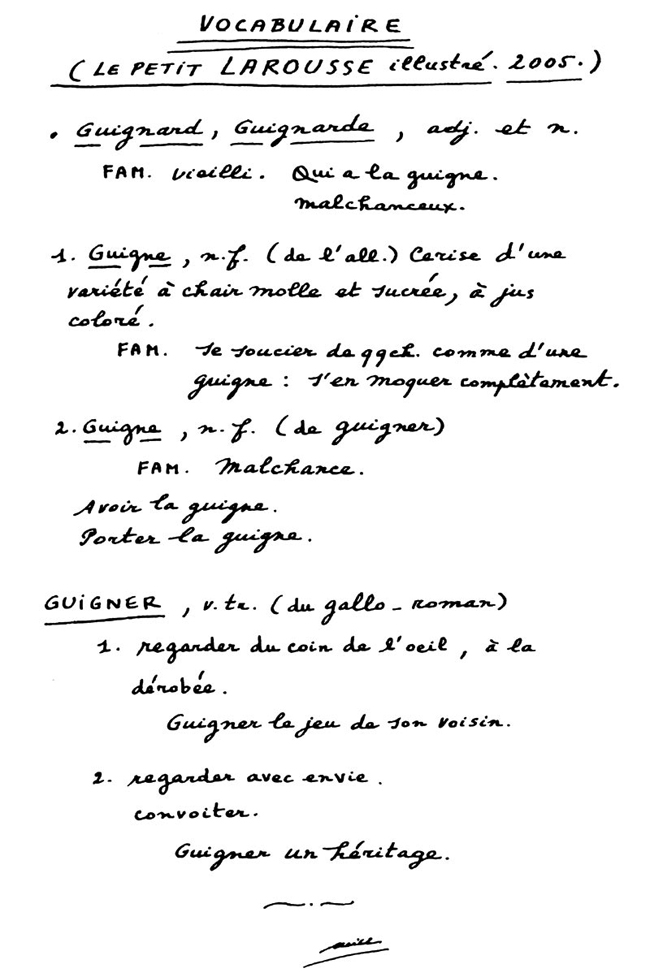 VOCABULAIRE
(LE PETIT LAROUSSE illustré. 2005.)
• Guignard, Guignarde, adj. et n.
FAM. vieilli. Qui a la guigne.
malchanceux.
1. Guigne, n.f. (de l'all.) Cerise d'une
variété à chair molle et sucrée, à jus
coloré.
FAM. se soucier de qqch. comme d'une
guigne : s'en moquer complètement.
2. Guigne, n.f. (de guigner)
FAM. Malchance.
Avoir la guigne.
Porter la guigne.
GUIGNER, v.tr. (du gallo-roman)
1. regarder du coin de l'oeil, à la
dérobée.
Guigner le jeu de son voisin.
2. regarder avec envie.
convoiter.
Guigner un héritage.